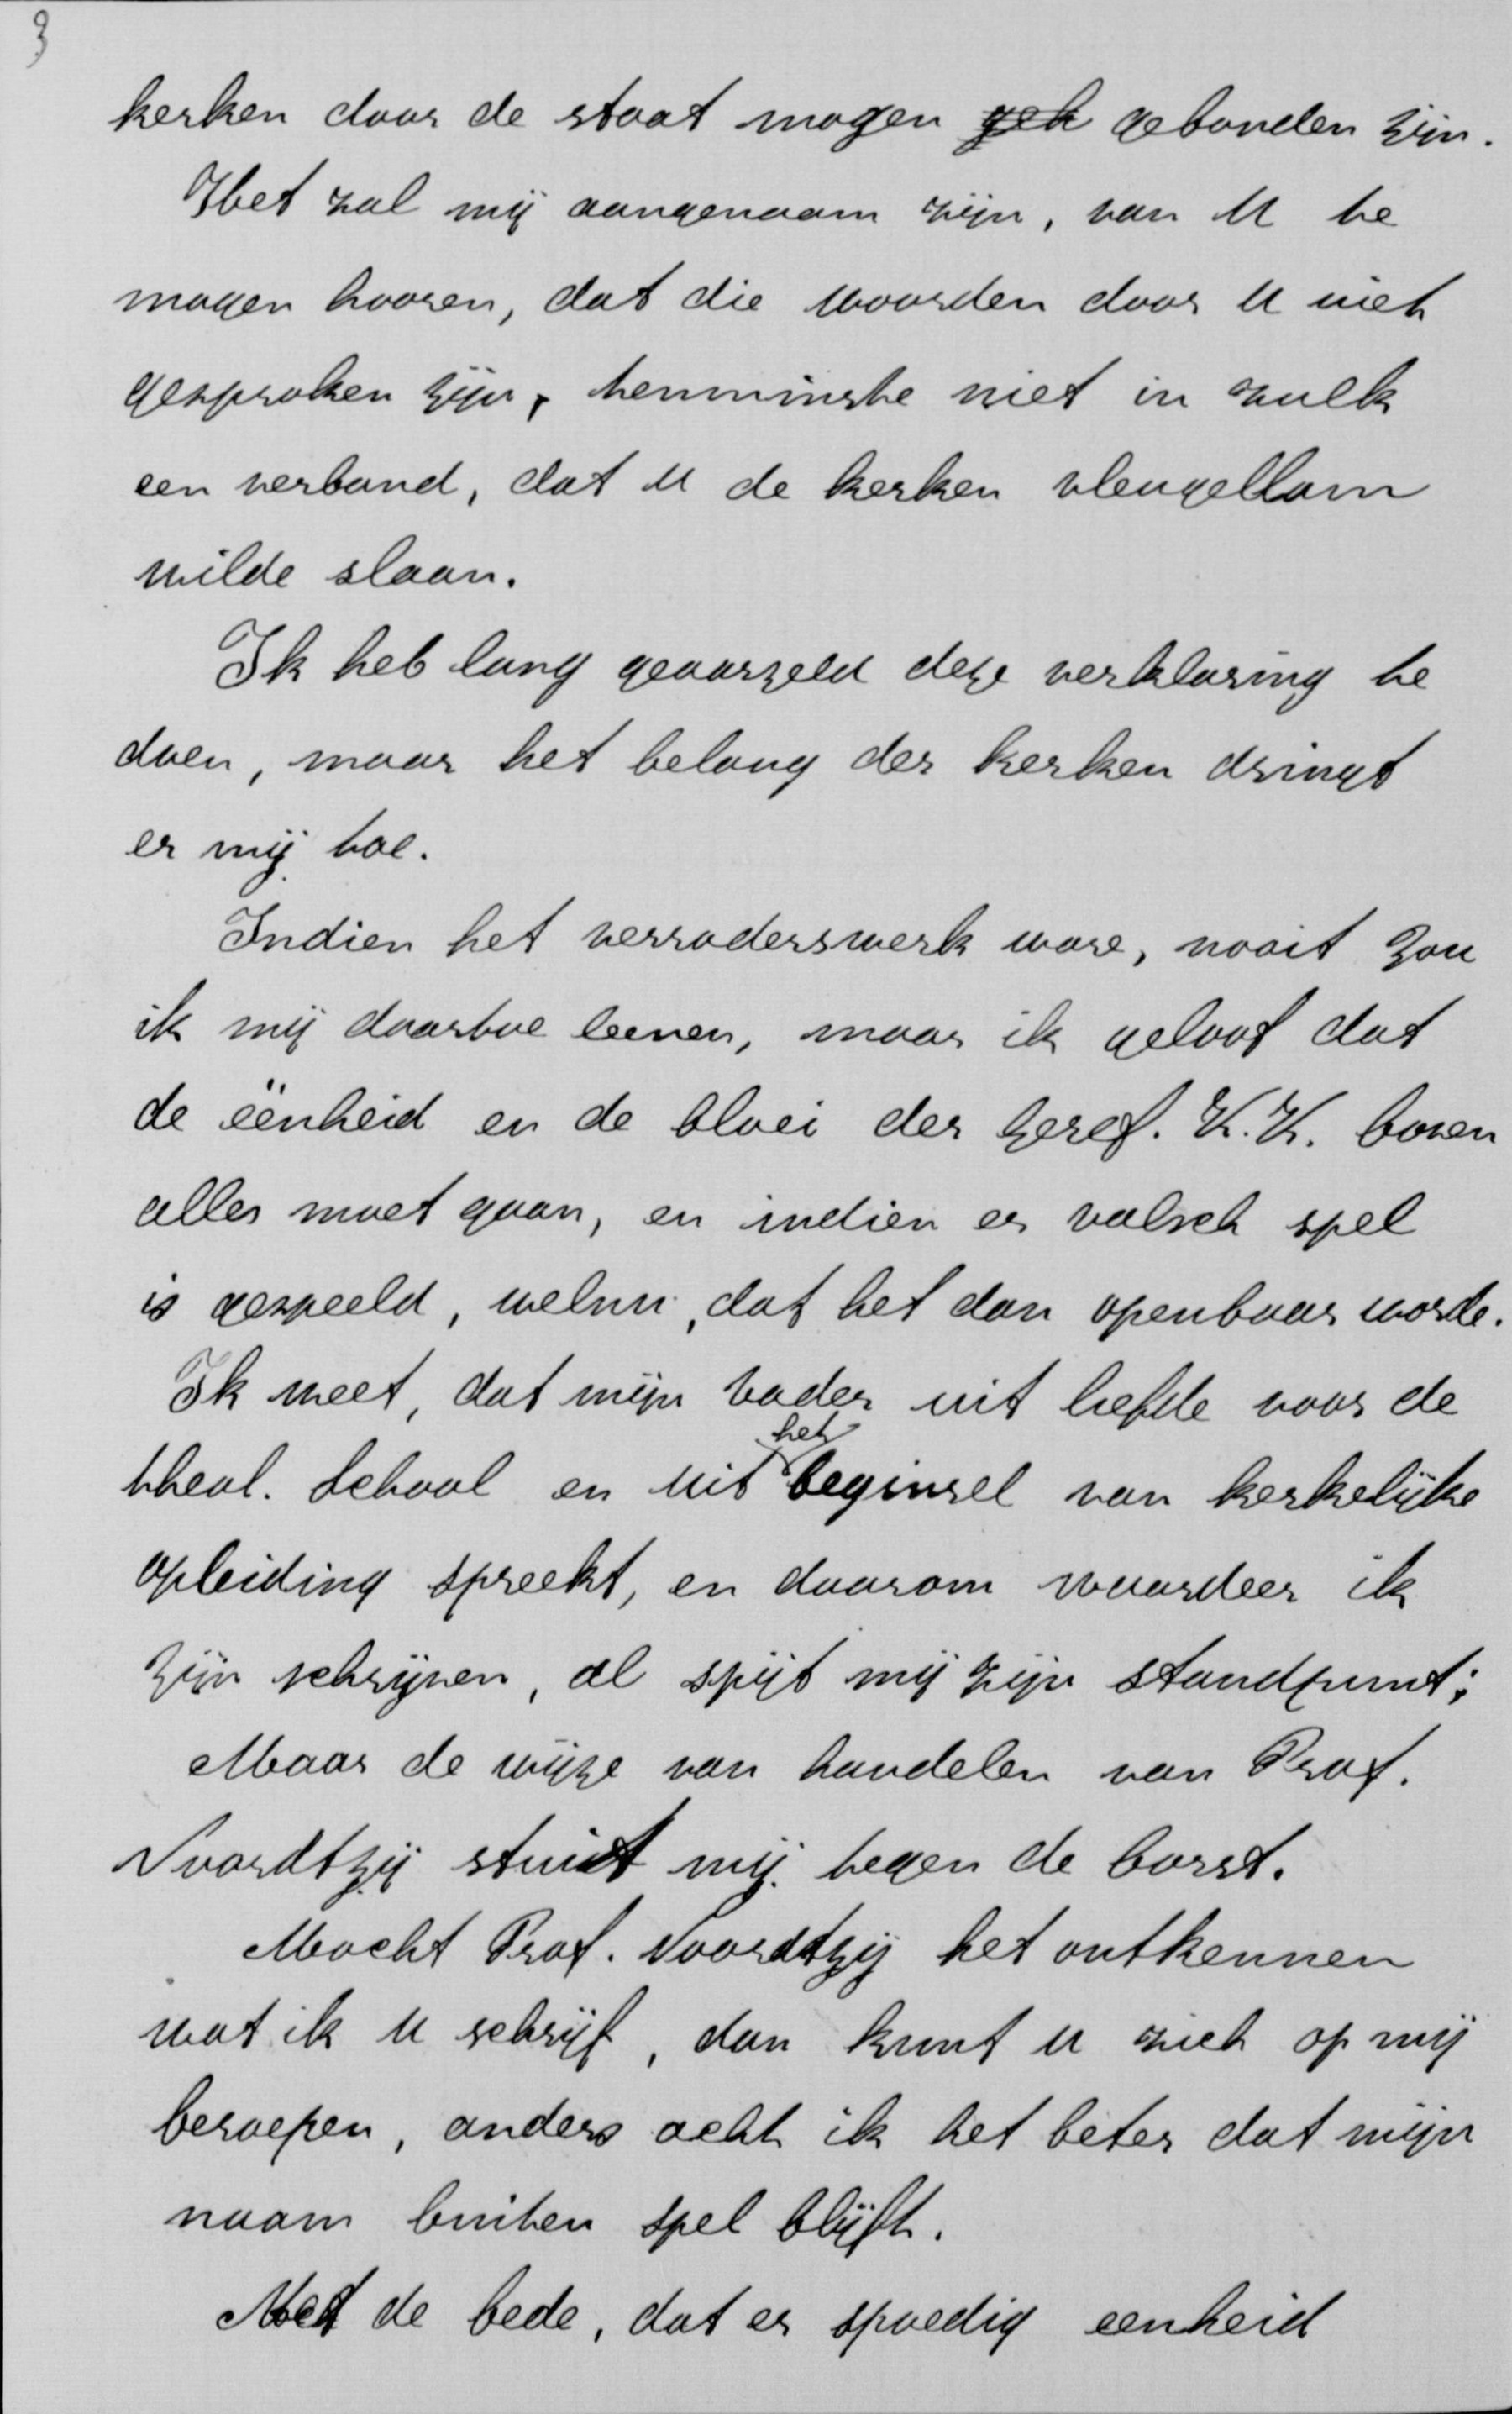 3
kerken door de staat mogen geh gebonden zijn.
Het zal mij aangenaam zijn, van U te
mogen hooren, dat die woorden door U niet
gesproken zijn, tenminste niet in zulk
een verband, dat U de kerken vleugellam
wilde slaan.
Ik heb lang geaarzeld deze verklaring te
doen, maar het belang der kerken dringt
er mij toe.
Indien het verraderswerk ware, nooit zou
ik mij daartoe leenen, maar ik geloof dat
de ëenheid en de bloei der Geref. K.K. boven
alles moet gaan, en indien er valsch spel
is gespeeld, welnu, dat het dan openbaar worde.
Ik weet, dat mijn vader uit liefde voor de
theol. School en uit het beginsel van kerkelijke
opleiding spreekt, en daarom waardeer ik
zijn schrijven, al spijt mij zijn standpunt;
Maar de wijze van handelen van Prof.
Noordtzij stuit mij tegen de borst.
Mocht Prof. Noordtzij het ontkennen
wat ik U schrijf, dan kunt U zich op mij
beroepen, anders acht ik het beter dat mijn
naam buiten spel blijft.
Met de bede, dat er spoedig eenheid